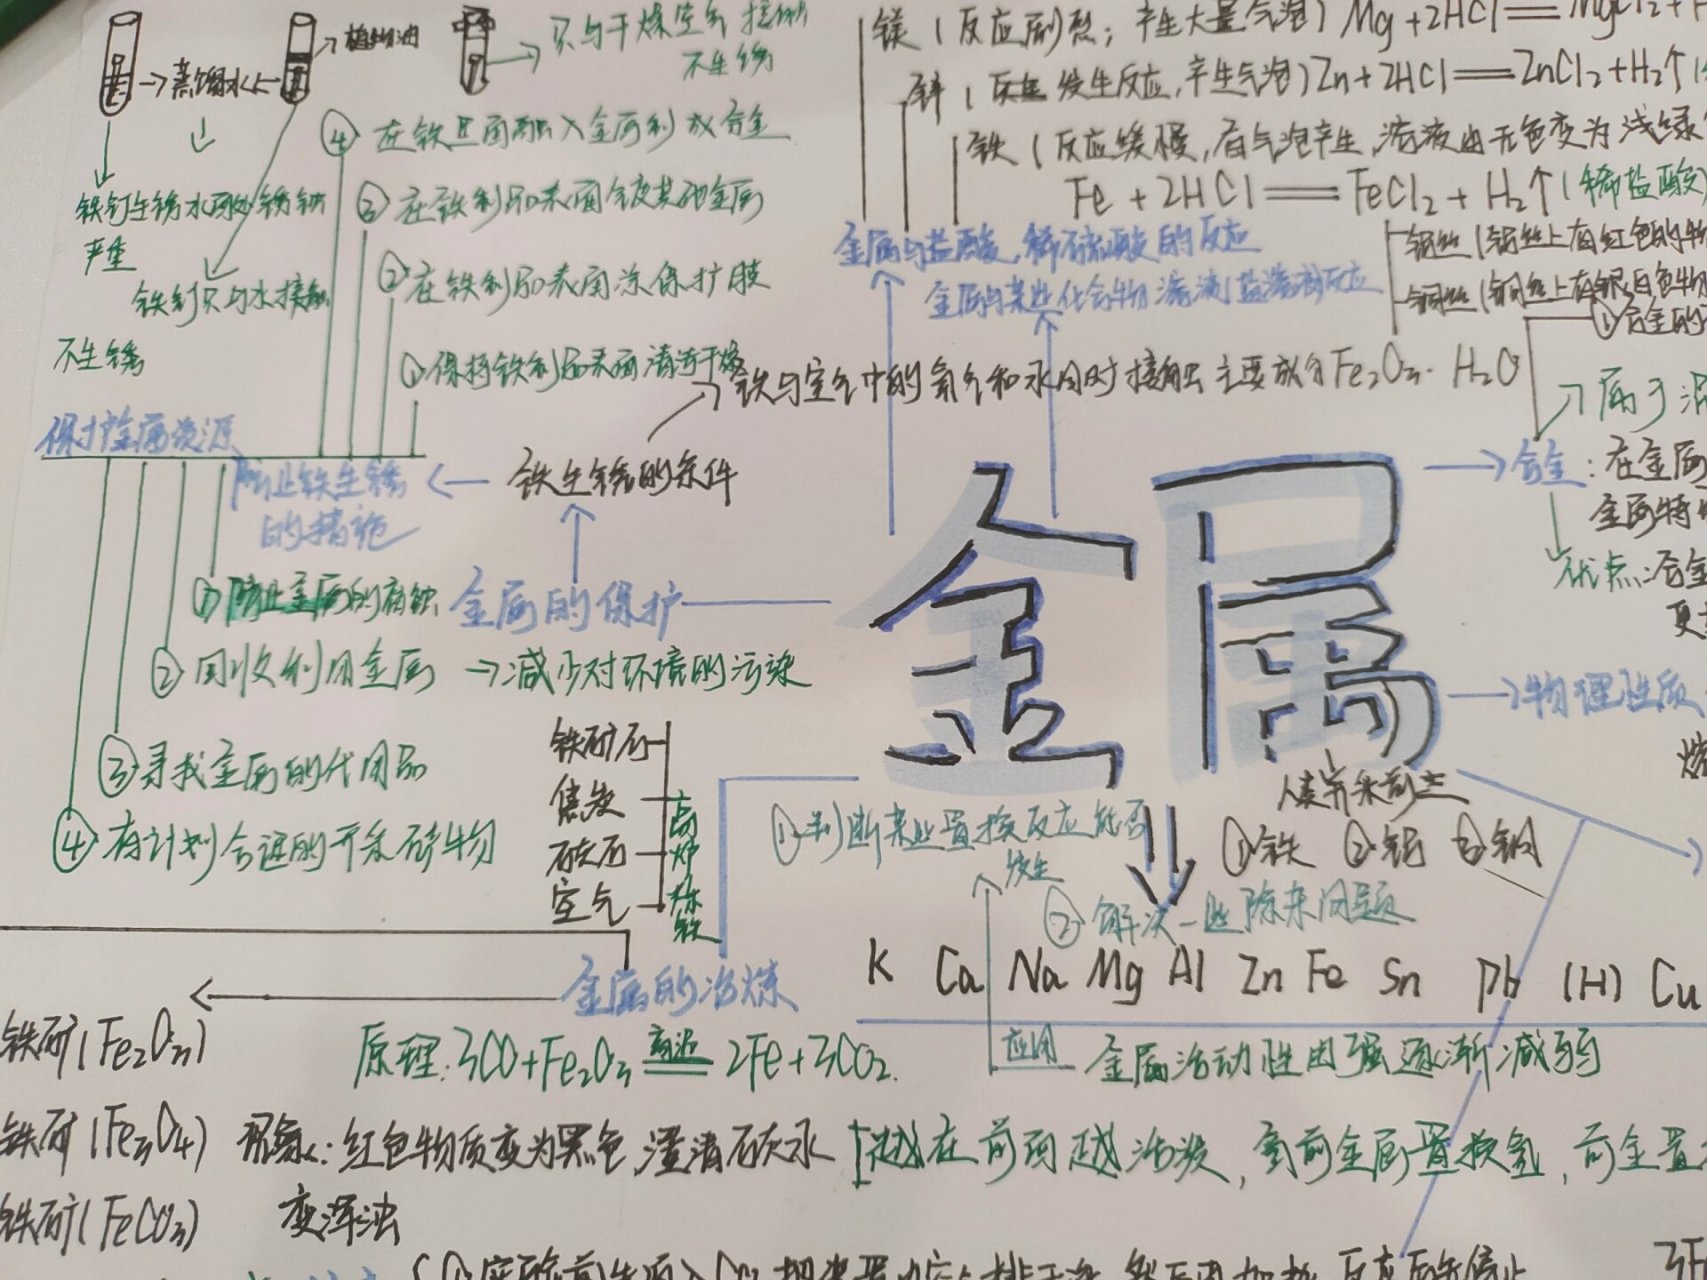 植物油
蒸馏水
只与干燥空气接触
不生锈
铁钉生锈水面处锈蚀
严重
铁制只与水接触
不生锈
④在铁里面融入金属制成合金
③在铁制品表面镀其他金属
②在铁制品表面涂保护膜
①保持铁制品表面清洁干燥
保护金属资源
防止铁生锈
的措施
铁生锈的条件
铁与空气中的氧气和水同时接触 主要成分Fe₂O₃·H₂O
①防止金属的腐蚀
②回收利用金属 →减少对环境的污染
③寻找金属的代用品
④有计划合理的开采矿物
金属的保护
镁(反应剧烈;产生大量气泡) Mg+2HCl═MgCl₂+
锌(反应发生反应,产生气泡)Zn+2HCl═ZnCl₂+H₂↑(
铁(反应缓慢,有气泡产生,溶液由无色变为浅绿
Fe+2HCl═FeCl₂+H₂↑(稀盐酸
金属与盐酸,稀硫酸的反应
金属与某些化合物溶液(盐溶液)反应
铝丝(铝丝上有红色的物
铜丝(铜丝上有银白色物
属于混
合金:在金属
金属特
优点:合金
更
物理性质
金属
人类开采前三
①铁 ②铝 ③铜
①判断某些置换反应能否
发生
②解决一些除杂问题
铁矿石
焦炭
石灰石
空气
高炉炼铁
金属的冶炼
K Ca Na Mg Al Zn Fe Sn Pb (H) Cu
应用
金属活动性由强逐渐减弱
铁矿(Fe₂O₃)
原理:3CO+Fe₂O₃ 高温═ 2Fe+3CO₂.
铁矿(Fe₃O₄)
现象:红色物质变为黑色,澄清石灰水
变浑浊
[越在前面越活泼,氢前金属置换氢,前金置
铁矿(FeCO₃)
3F